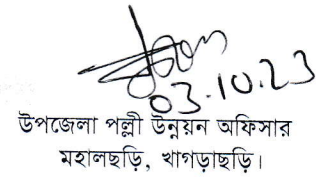 03.10.23
উপজেলা পল্লী উন্নয়ন অফিসার
মহালছড়ি, খাগড়াছড়ি।